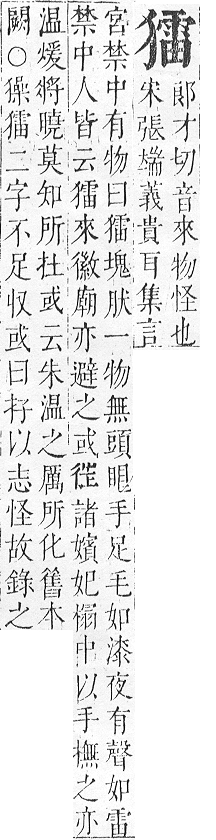 㺢
郎才切音來物怪也
宋張端義貴耳集言
宮禁中有物曰㺢塊狀一物無頭眼手足毛如漆夜有聲如雷
禁中人皆云㺢來徽廟亦避之或徃諸嬪妃榻中以手撫之亦
溫煖將曉莫知所在或云朱溫之厲所化舊本
闕○𤢖㺢二字不足収或曰存以志怪故錄之